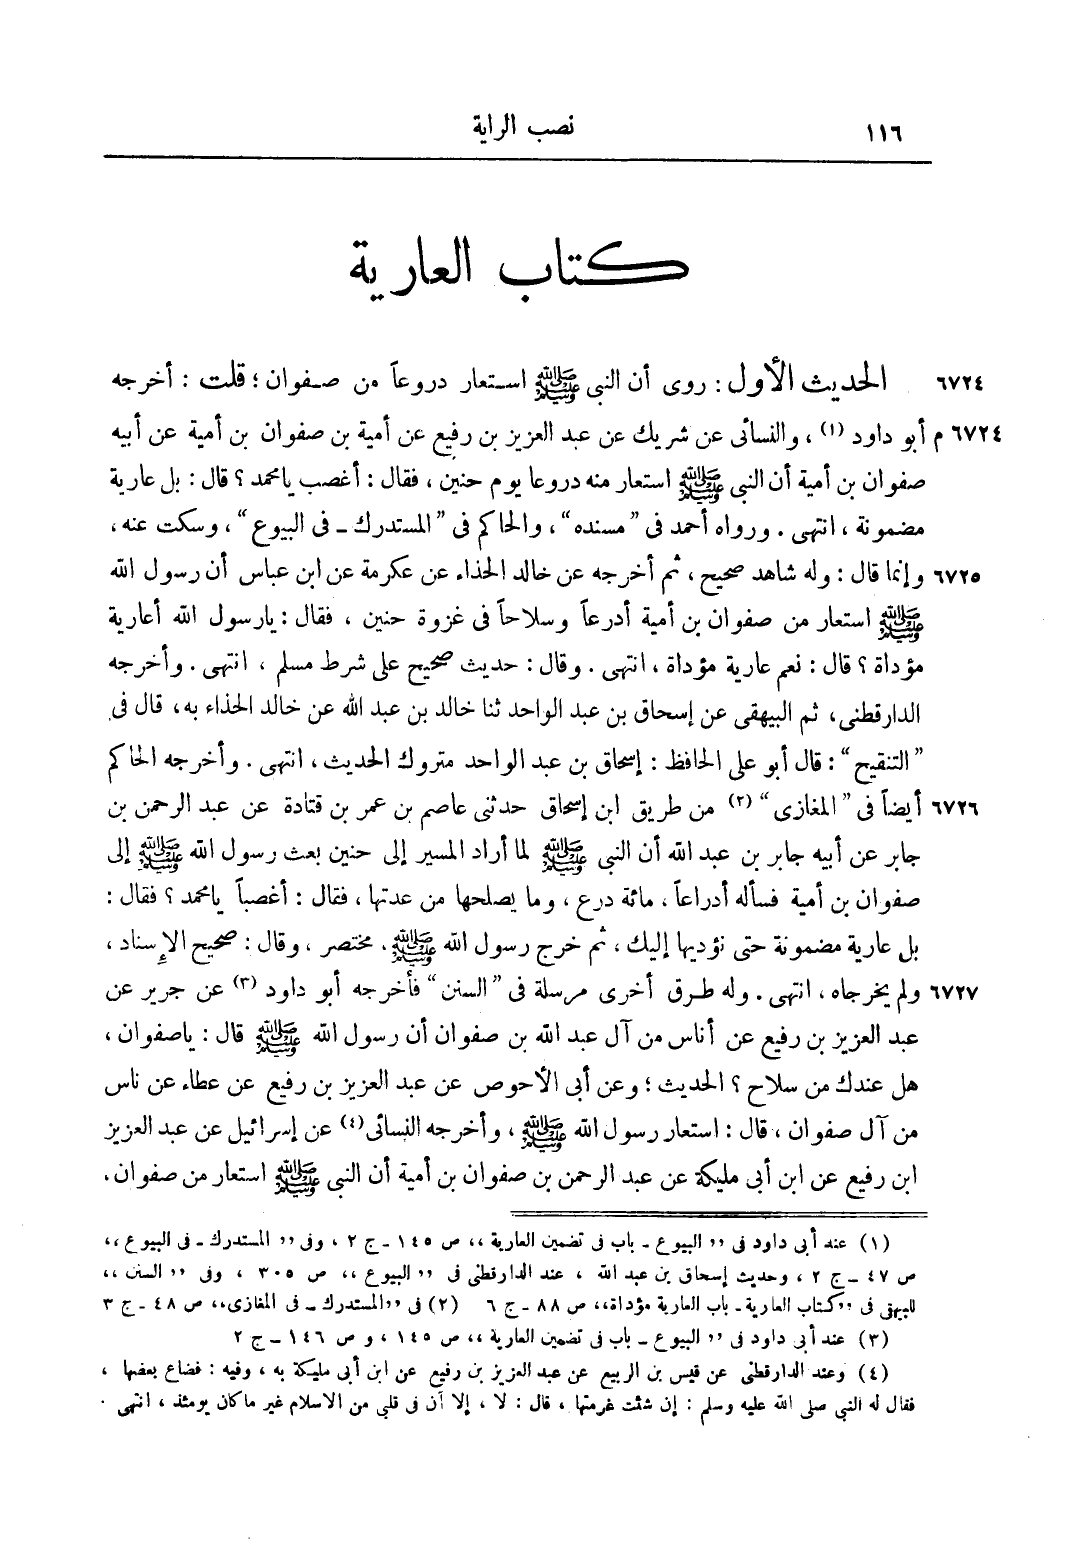 ١١٦
نصب الراية
كتاب العارية
٦٧٢٤ الحديث الأول: روى أن النبى ﷺ استعار دروعاً من صفوان؛ قلت: أخرجه
٦٧٢٤ م أبو داود (١)، والنسائى عن شريك عن عبد العزيز بن رفيع عن أمية بن صفوان بن أمية عن أبيه
صفوان بن أمية أن النبى ﷺ استعار منه دروعا يوم حنين، فقال: أغصب يا محمد؟ قال: بل عارية
مضمونة، انتهى. ورواه أحمد فى "مسنده"، والحاكم فى "المستدرك ـ فى البيوع"، وسكت عنه،
٦٧٢٥ وإنما قال: وله شاهد صحيح، ثم أخرجه عن خالد الحذاء عن عكرمة عن ابن عباس أن رسول الله
ﷺ استعار من صفوان بن أمية أدرعاً وسلاحاً فى غزوة حنين، فقال: يارسول الله أعارية
مؤداة؟ قال: نعم عارية مؤداة، انتهى. وقال: حديث صحيح على شرط مسلم، انتهى. وأخرجه
الدارقطنى، ثم البيهقى عن إسحاق بن عبد الواحد ثنا خالد بن عبد الله عن خالد الحذاء به، قال فى
"التنقيح": قال أبو على الحافظ: إسحاق بن عبد الواحد متروك الحديث، انتهى. وأخرجه الحاكم
٦٧٢٦ أيضاً فى "المغازى" (٢) من طريق ابن إسحاق حدثنى عاصم بن عمر بن قتادة عن عبد الرحمن بن
جابر عن أبيه جابر بن عبد الله أن النبى ﷺ لما أراد المسير إلى حنين بعث رسول الله ﷺ إلى
صفوان بن أمية فسأله أدراعاً، مائة درع، وما يصلحها من عدتها، فقال: أغصباً يامحمد؟ فقال:
بل عارية مضمونة حتى نؤديها إليك، ثم خرج رسول الله ﷺ. مختصر، وقال: صحيح الإسناد،
٦٧٢٧ ولم يخرجاه، انتهى. وله طرق أخرى مرسلة فى "السنن" فأخرجه أبو داود (٣) عن جرير عن
عبد العزيز بن رفيع عن أناس من آل عبد الله بن صفوان أن رسول الله ﷺ قال: ياصفوان،
هل عندك من سلاح؟ الحديث؛ وعن أبى الأحوص عن عبد العزيز بن رفيع عن عطاء عن ناس
من آل صفوان، قال: استعار رسول الله ﷺ، وأخرجه النسائى (٤) عن إسرائيل عن عبد العزيز
ابن رفيع عن ابن أبى مليكة عن عبد الرحمن بن صفوان بن أمية أن النبى ﷺ استعار من صفوان.
(١) عند أبى داود فى ,, البيوع ـ باب فى تضمين العارية ,, ص ١٤٥ ـ ج ٢، وفى ,, المستدرك ـ فى البيوع ,,
ص ٤٧ ـ ج ٢، وحديث إسحاق بن عبد الله، عند الدارقطنى فى ,, البيوع ,, ص ٣٠٥، وفى ,, السنن ,,
للبيهقى فى ,,كتاب العارية ـ باب العارية مؤداة,, ص ٨٨ ـ ج ٦ (٢) فى ,,المستدرك ـ فى المغازى,, ص ٤٨ ـ ج ٣
(٣) عند أبى داود فى ,, البيوع ـ باب فى تضمين العارية ,, ص ١٤٥، و ص ١٤٦ ـ ج ٢
(٤) وعند الدارقطنى عن قيس بن الربيع عن عبد العزيز بن رفيع عن ابن أبى مليكة به، وفيه: فضاع بعضها،
فقال له النبى صلى الله عليه وسلم: إن شئت غرمتها، قال: لا، إلا أن فى قلبى من الاسلام غير ماكان يومئذ، انتهى.